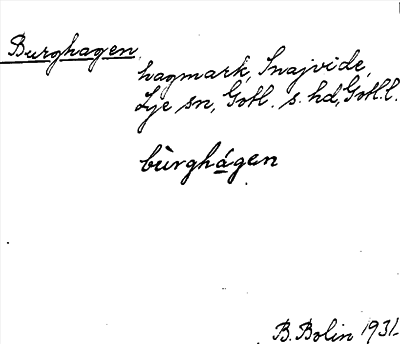 Burghagen
hagmark, Snajvide,
Lye sn, Gotl. s. hd, Gotl. l.
bùrghágen
B. Bolin 1931